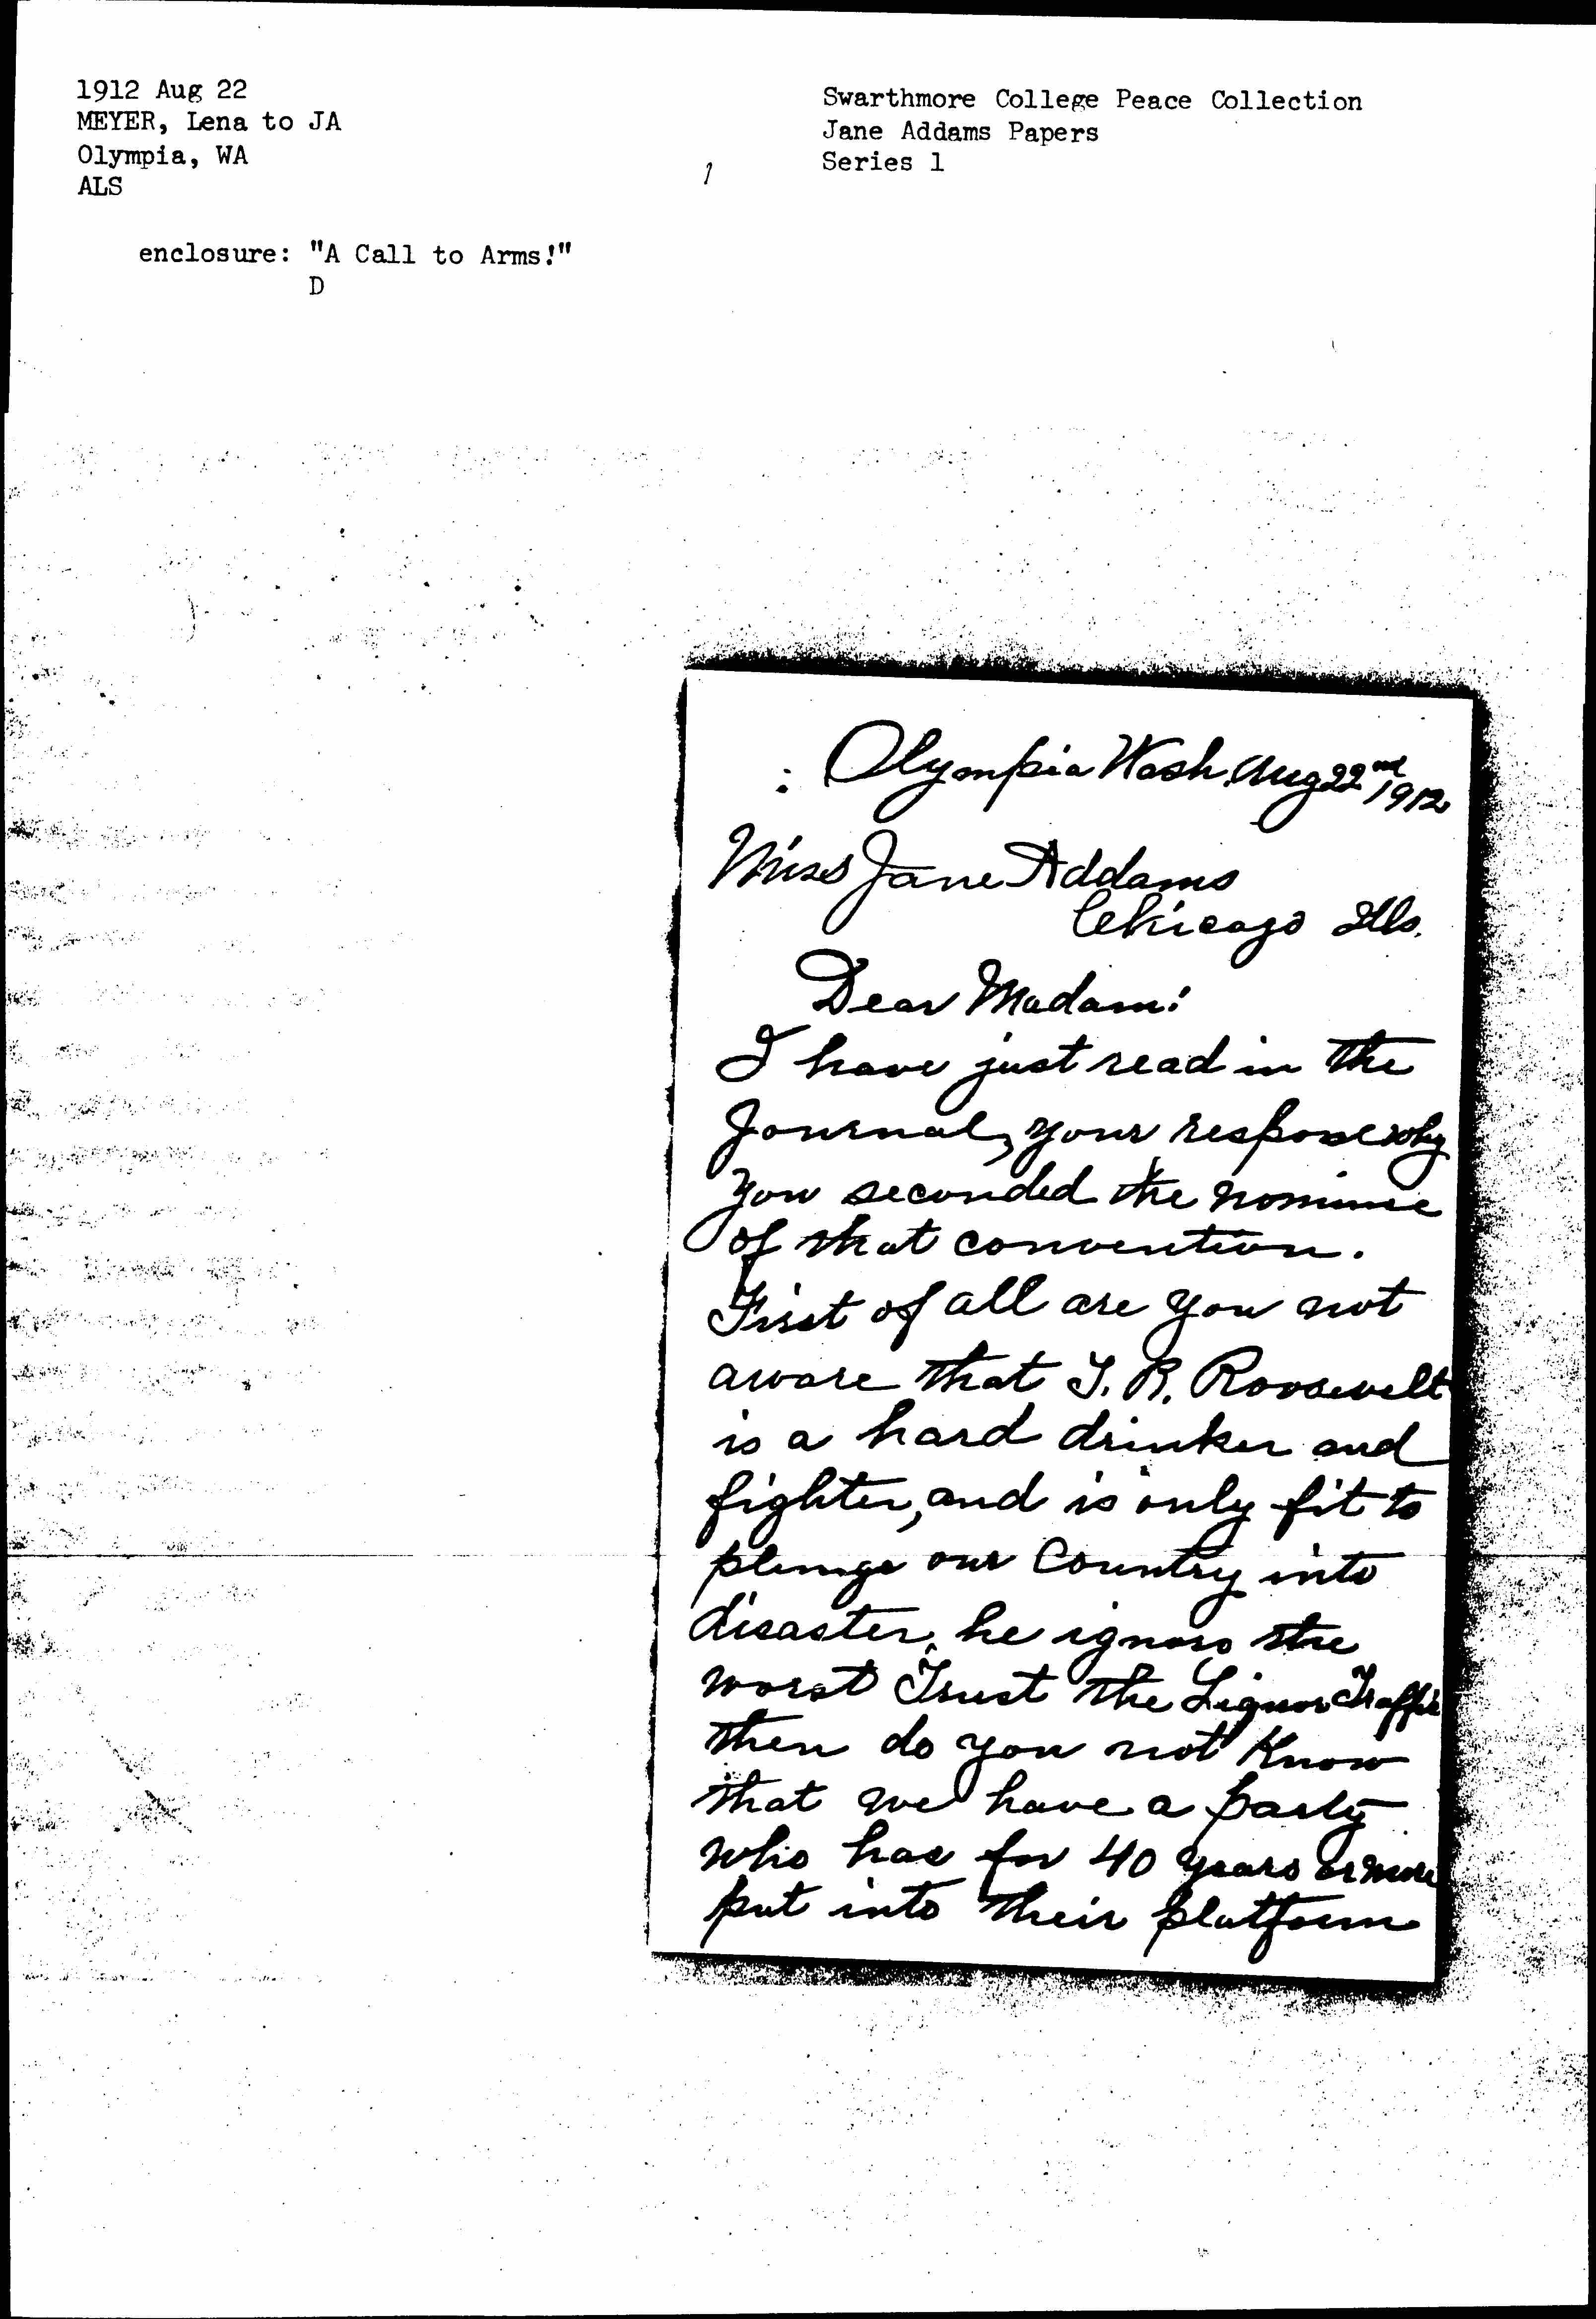 1912 Aug 22
MEYER, Lena to JA
Olympia, WA
ALS
enclosure: "A Call to Arms!"
D
1
Swarthmore College Peace Collection
Jane Addams Papers
Series 1
Olympia Wash. Aug 22nd 1912
Miss Jane Addams
Chicago Ills.
Dear Madam:
I have just read in the
Journal, your respose why
you seconded the nominee
of that convention.
First of all are you not
aware that T. R. Roosevelt
is a hard drinker and
fighter, and is only fit to
plunge our Country into
disaster, he ignors the
worst Trust the Liquor Traffic
then do you not Know
that we have a party
who has for 40 years or more
put into their platform